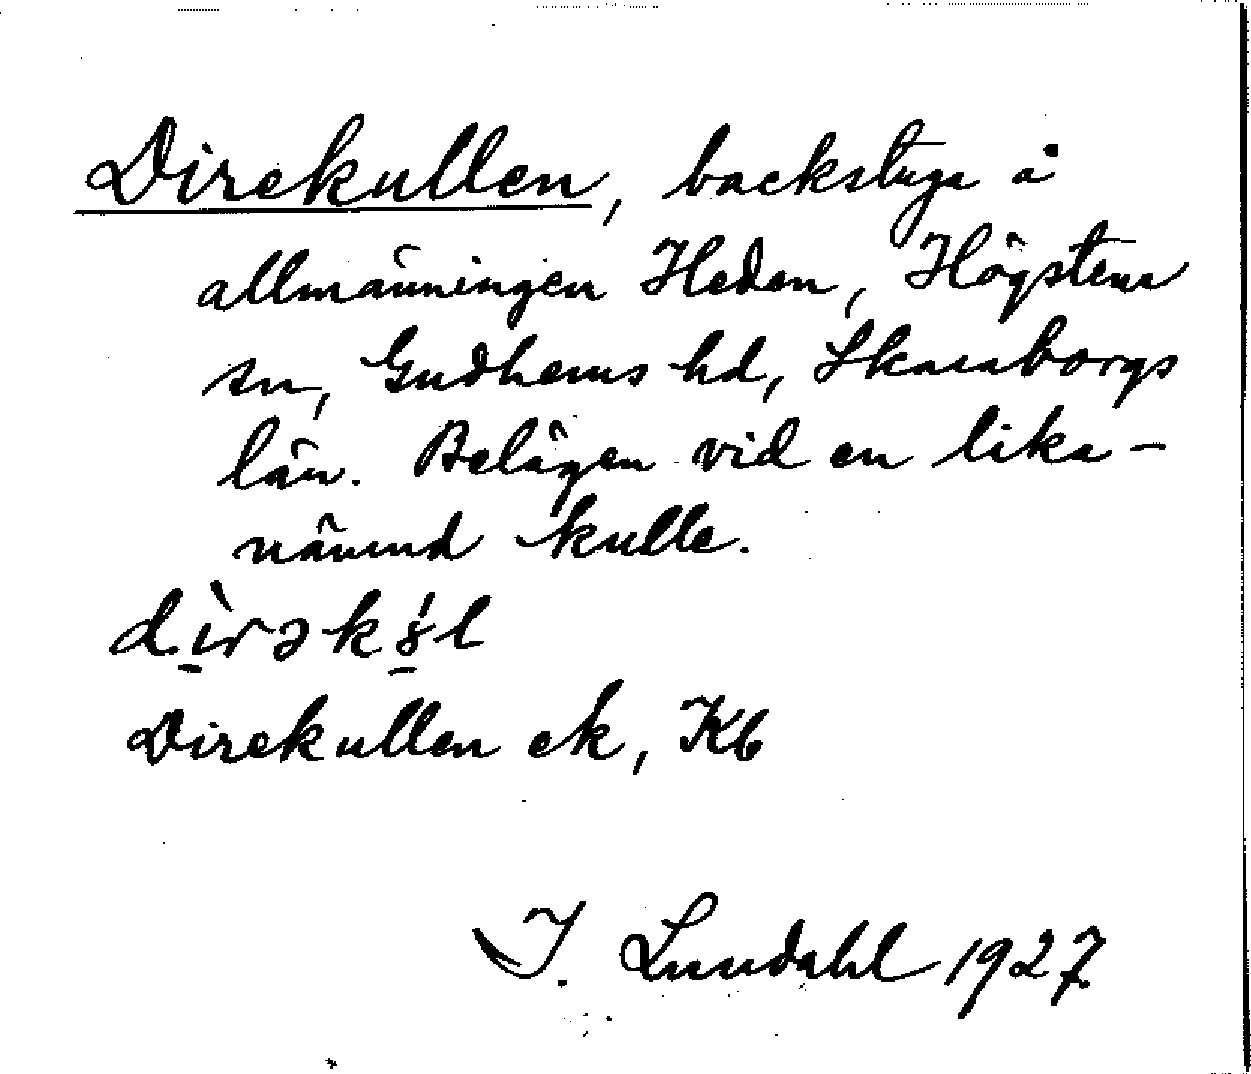 Direkullen, backstuga å
allmänningen Heden, Högstena
sn, Gudhems hd, Skaraborgs
län. Belägen vid en lika-
nämnd kulle.
dìrəkɤ́l
Direkullen ek, Kb
I. Lundahl 1927